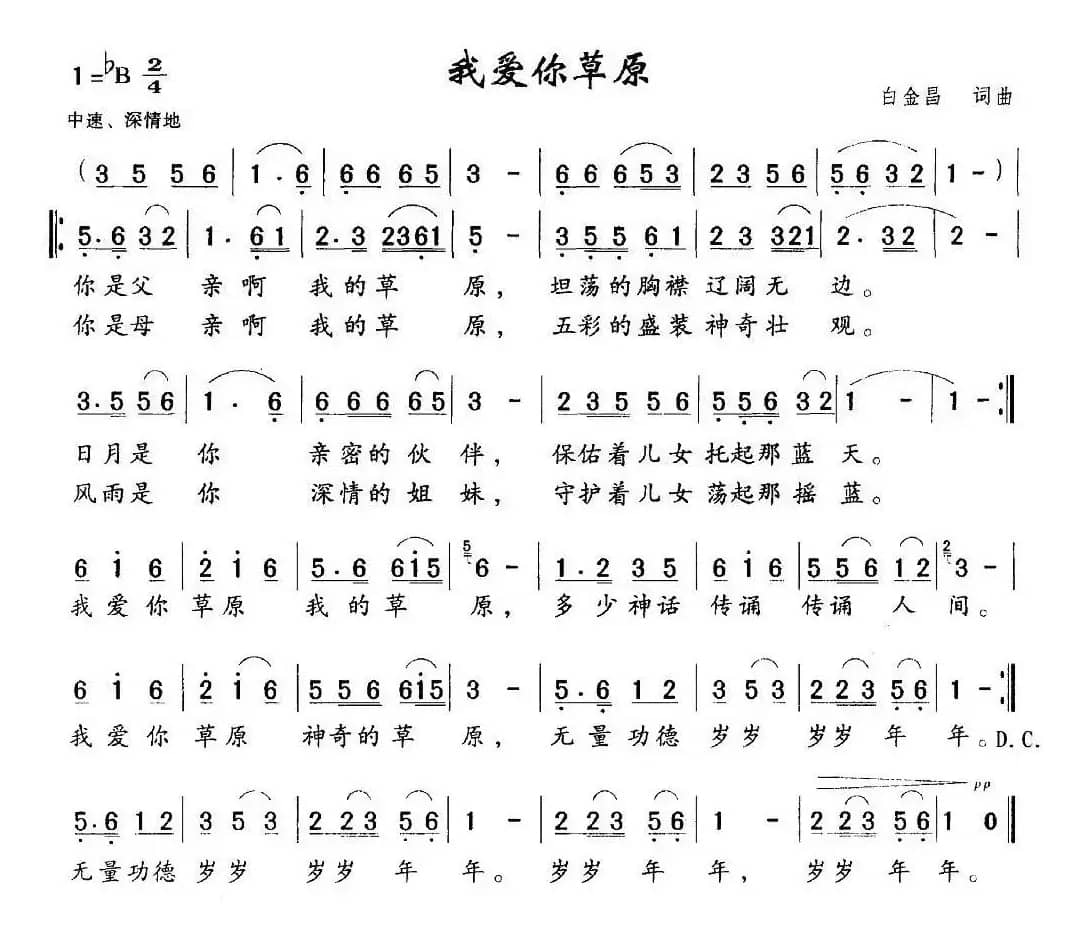 我爱你草原
1=♭B 2/4
白金昌 词曲
中速、深情地
(3 5 5 6 | 1 · 6 | 6 6 6 5 | 3 - | 6 6 6 5 3 | 2 3 5 6 | 5 6 3 2 | 1 - ) |
‖: 5 · 6 3 2 | 1 · 6 1 | 2 · 3 2 3 6 1 | 5 - | 3 5 5 6 1 | 2 3 3 2 1 | 2 · 3 2 | 2 - |
你是父 亲啊 我的草 原， 坦荡的胸襟 辽阔无 边。
你是母 亲啊 我的草 原， 五彩的盛装 神奇壮 观。
3 · 5 5 6 | 1 · 6 | 6 6 6 6 5 | 3 - | 2 3 5 5 6 | 5 5 6 3 2 | 1 - | 1 - :‖
日月是 你 亲密的 伙 伴， 保佑着儿女 托起那 蓝 天。
风雨是 你 深情的 姐 妹， 守护着儿女 荡起那 摇 蓝。
6 1 6 | 2 1 6 | 5 · 6 6 1 5 | 5 6 - | 1 · 2 3 5 | 6 1 6 | 5 5 6 1 2 | 2 3 - |
我爱你 草原 我的草 原， 多少神话 传诵 传诵 人 间。
6 1 6 | 2 1 6 | 5 5 6 6 1 5 | 3 - | 5 · 6 1 2 | 3 5 3 | 2 2 3 5 6 | 1 - :‖
我爱你 草原 神奇的草 原， 无量功德 岁岁 岁岁 年 年。D.C.
pp
5 · 6 1 2 | 3 5 3 | 2 2 3 5 6 | 1 - | 2 2 3 5 6 | 1 - | 2 2 3 5 6 | 1 0 ‖
无量功德 岁岁 岁岁 年 年。 岁岁 年 年， 岁岁 年 年。